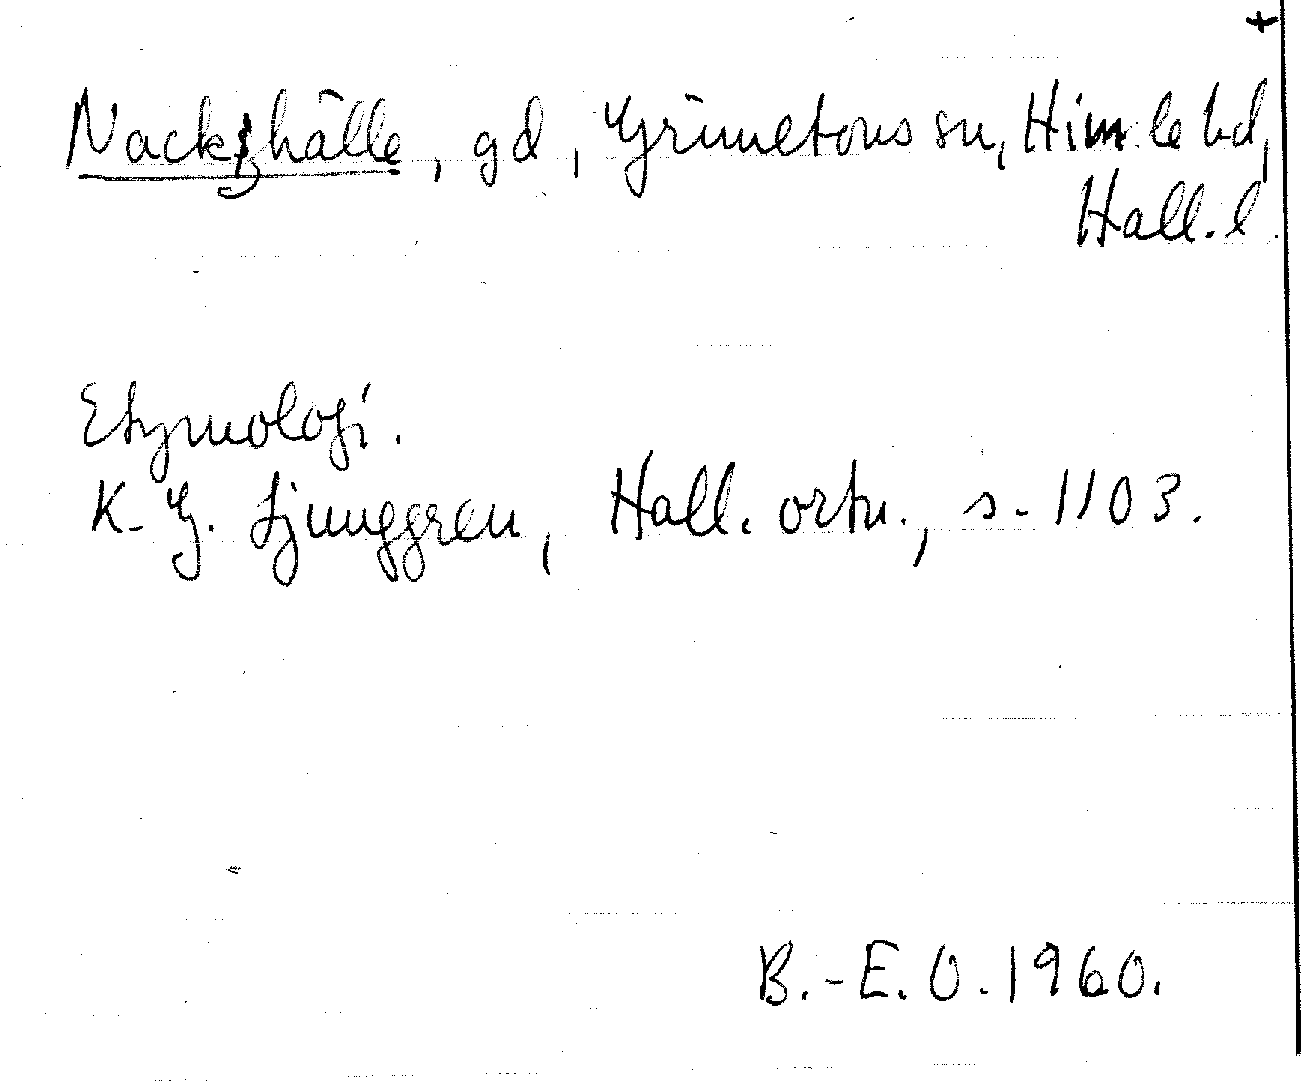 +
Nackhälle, gd, Grimetons sn, Himle hd,
Hall. l.
Etymologi.
K. G. Ljunggren, Hall. ortn., s. 1103.
B.-E. O. 1960.